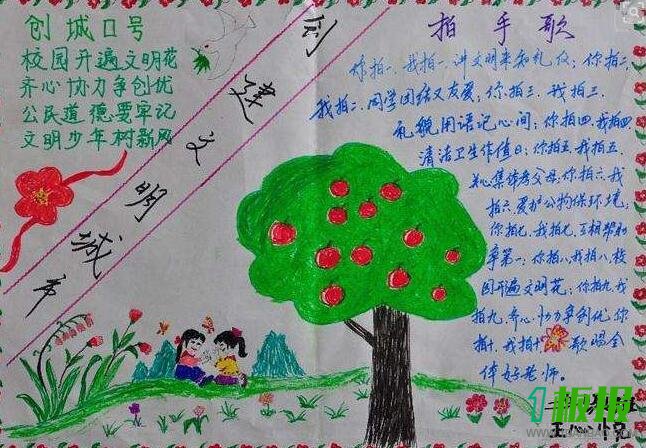 创城口号
校园开遍文明花
齐心协力争创优
公民道德要牢记
文明少年树新风
创建文明城市
拍手歌
你拍一、我拍一、讲文明来和礼仪；你拍二、
我拍二、同学团结又友爱；你拍三、我拍三、
礼貌用语记心间；你拍四、我拍四
清洁卫生作值日；你拍五、我拍五、
关心集体孝父母；你拍六、我
拍六、爱护公物保环境、
你拍七、我拍七、互相帮助
争第一；你拍八、我拍八、校
园开遍文明花；你拍九、我
拍九、齐心协力争创优、你
拍十、我拍十、歌唱全
体好老师。
板报